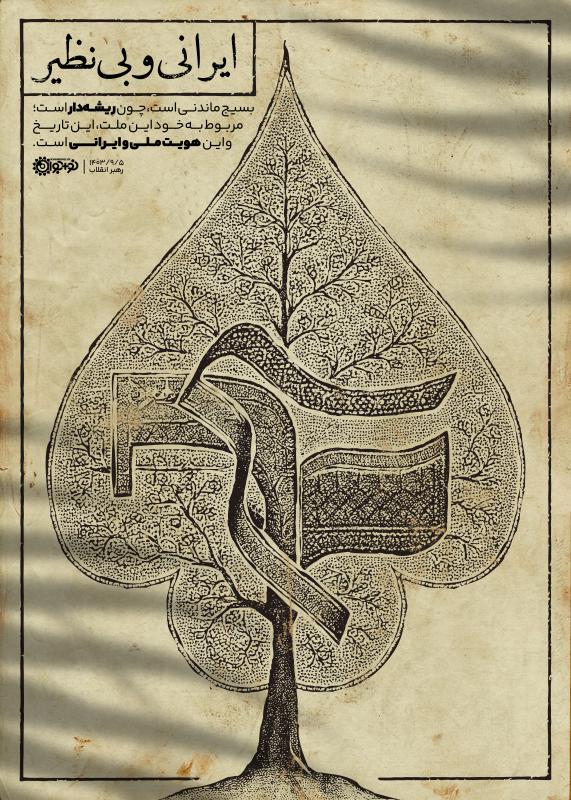 ایرانی و بی‌نظیر
بسیج ماندنی است، چون ریشه‌دار است؛
مربوط به خود این ملت، این تاریخ
و این هویت ملی و ایرانی است.
۱۴۰۳/۹/۵
رهبر انقلاب